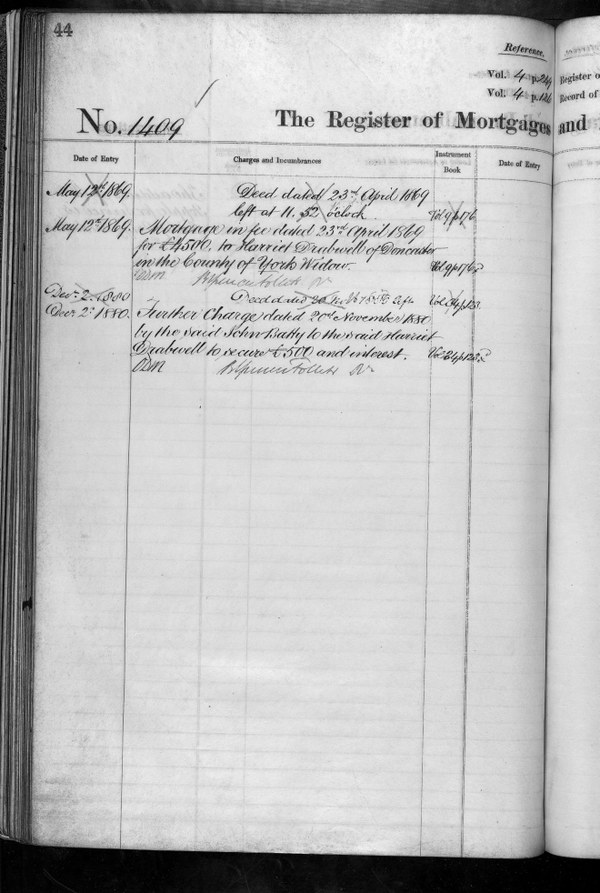 44
Reference.
Vol. 4 p.
Vol. 4 p.
Register o
Record of
No. 1409
The Register of Mortgages and
Date of Entry
Charges and Incumbrances
Instrument
Book
Date of Entry
May 12th 1869. Deed dated 23rd April 1869
left at 11. 52 o'clock Vol 9 p 176
May 12th 1869. Mortgage in fee dated 23rd April 1869
for £4500. to Harriet Drabwell of Doncaster
in the County of York Widow. Vol 9 p 176
Decr. 2. 1880 Deed dated
Decr. 2d 1880. Further Charge dated 20th November 1880
by the said John Batty to the said Harriet
Drabwell to secure £500 and interest. Vol 24 p 123